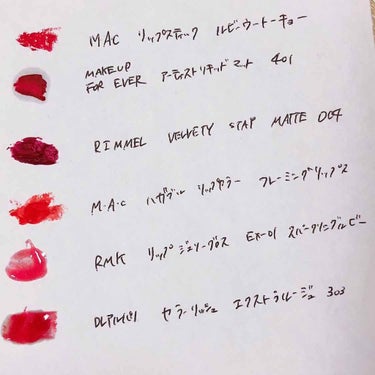 MAC リップスティック ルビーウートーキョー
MAKE UP
FOR EVER アーティストリキッドマット 401
RIMMEL VELVETY STAP MATTE 007
M・A・C ハガブル リップカラー フレーミングリップス
RMK リップジェリーグロス EX-01 スパークリングルビー
カラーリッシュ エクストラルージュ 303